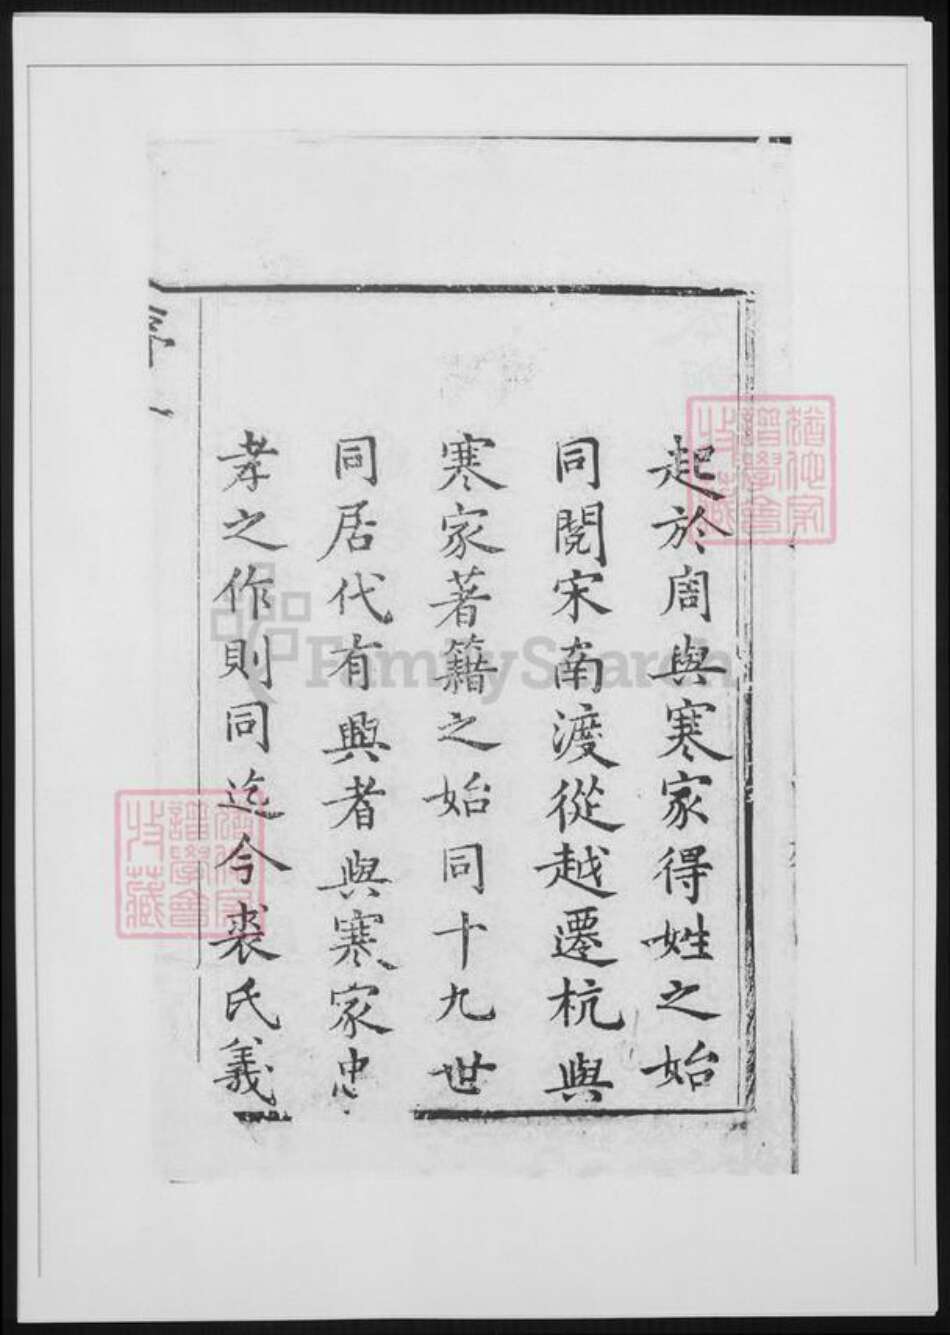 起於周與寒家得姓之始
同閱宋南渡從越遷杭與
寒家著籍之始同十九世
同居代有興者與寒家忠
孝之作則同迄今裘氏義
譜學會
收藏
譜學會
收藏
FamilySearch